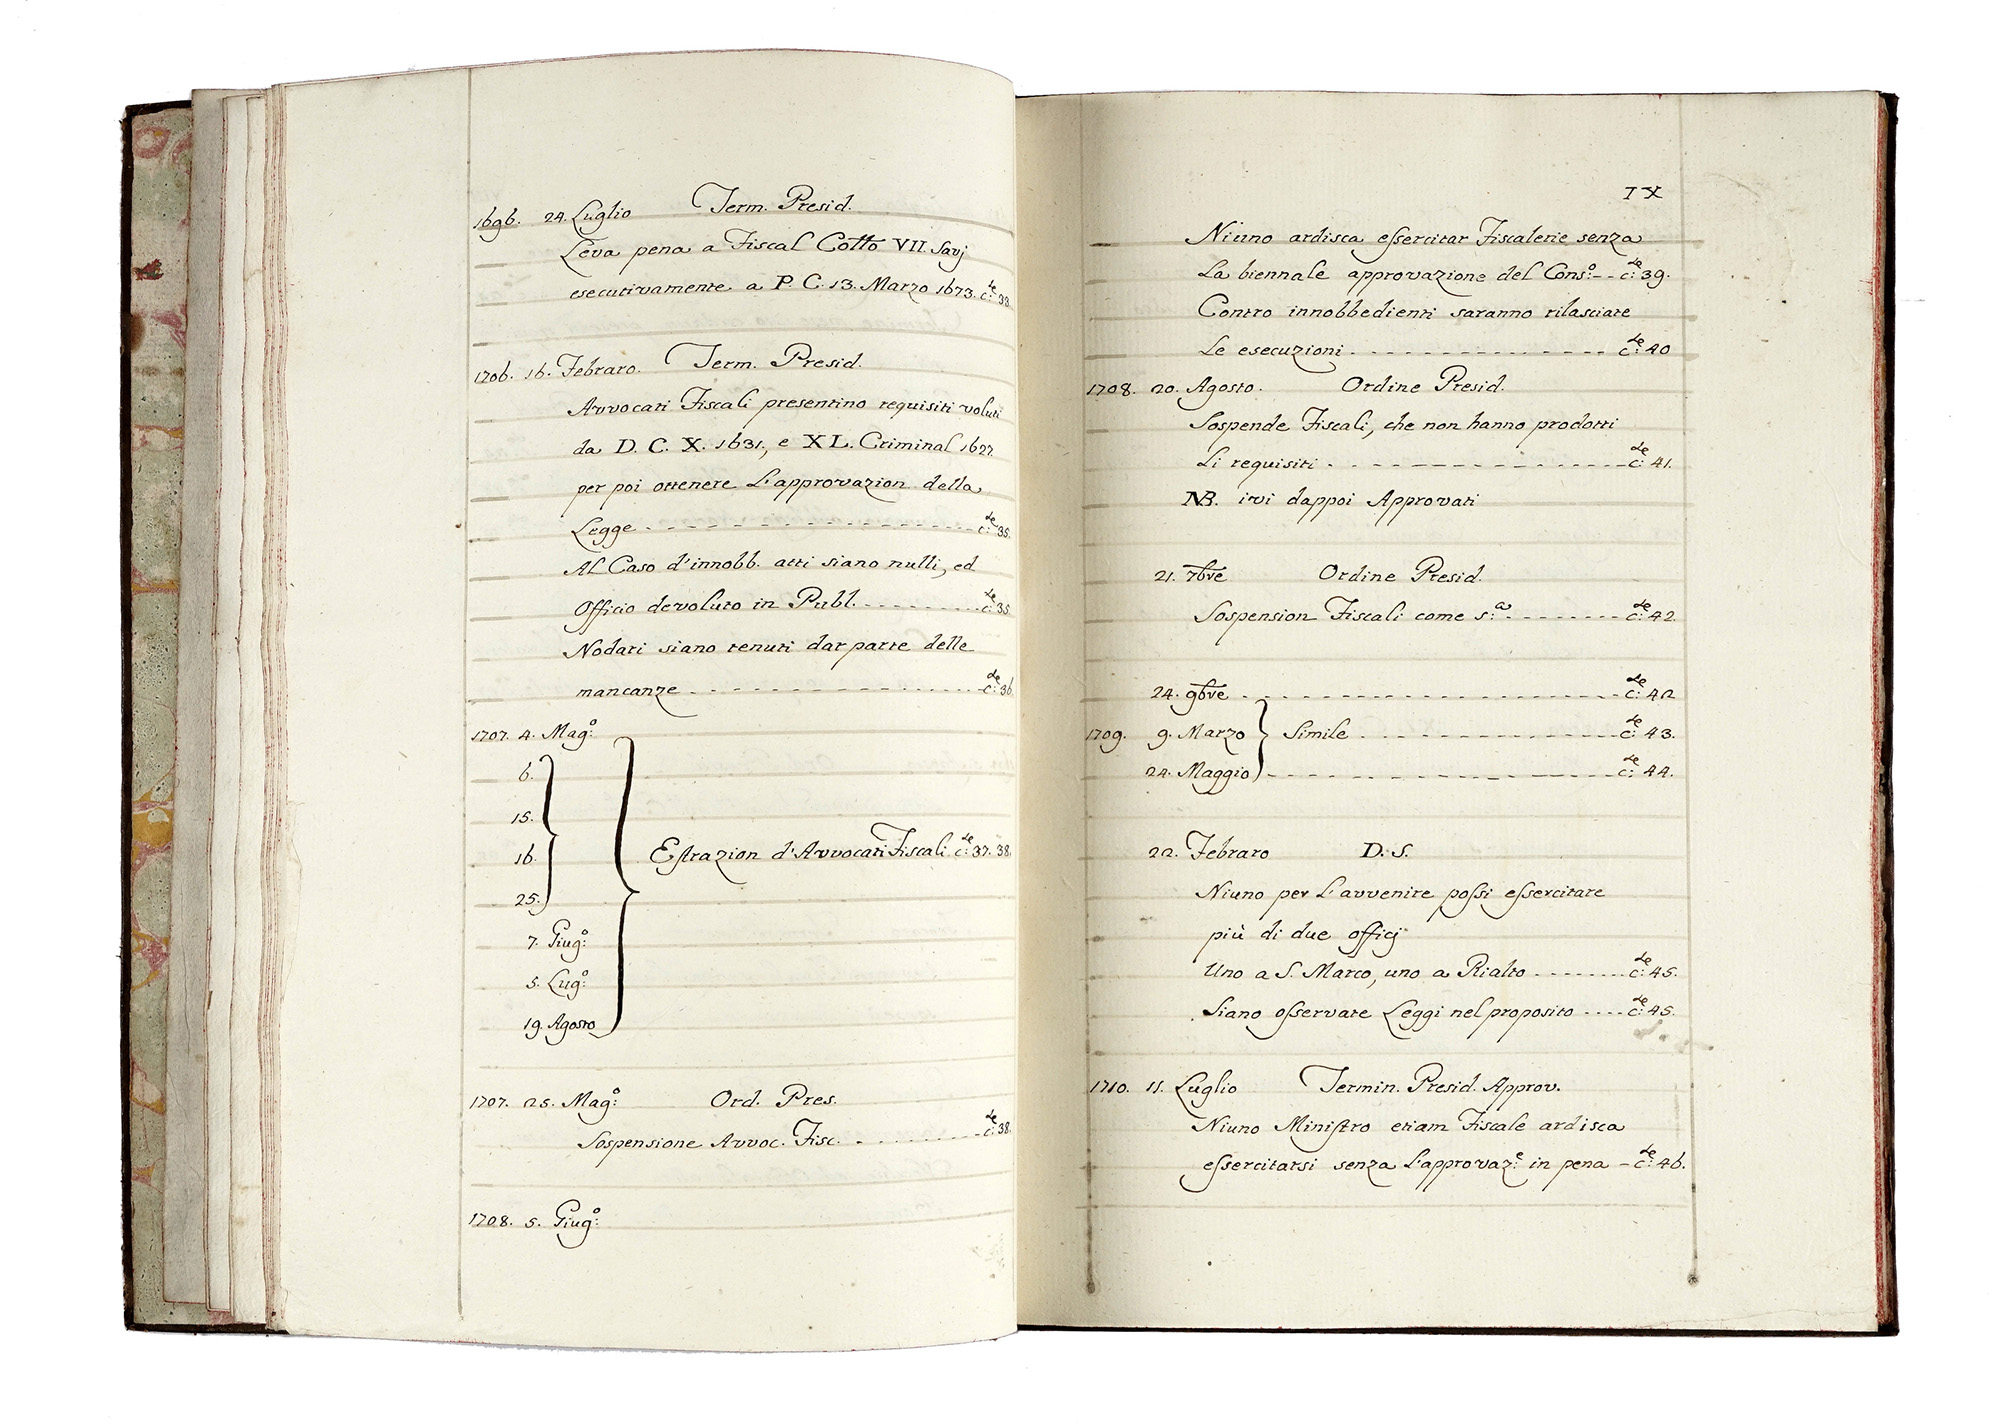 1696. 24. Luglio Term. Presid.
Leva pena a Fiscal Cotto VII. Savj
esecutivamente a P. C. 13. Marzo 1673. c:te 33.
1706. 16. Febraro. Term. Presid.
Avvocati Fiscali presentino requisiti voluti
da D. C. X. 1631., e XL. Criminal 1622
per poi ottenere l'approvazion della
Legge - - - - - - - - - - - - - - - - c:te 35.
Al Caso d'innobb. atti siano nulli, ed
Officio devoluto in Publ. - - - - - - - - c:te 35.
Nodari siano tenuti dar parte delle
mancanze - - - - - - - - - - - - - - - c:te 36.
1707. 4. Mag:o
6.
15.
16.
Estrazion d'Avvocati Fiscali c:te 37. 38.
25.
7. Giug:o
5. Lug:o
19. Agosto
1707. 25. Mag:o Ord. Pres.
Sospensione Avvoc. Fisc. - - - - - - - - c:te 38.
1708. 5. Giug:o
IX
Niuno ardisca essercitar Fiscalerie senza
la biennale approvazione del Cons:o - - c:te 39.
Contro innobbedienti saranno rilasciate
le esecuzioni - - - - - - - - - - - - - - c:te 40
1708. 20. Agosto. Ordine Presid.
Sospende Fiscali, che non hanno prodotti
li requisiti - - - - - - - - - - - - - - - c:te 41.
NB. ivi dappoi Approvati
21. 7bre Ordine Presid.
Sospension Fiscali come s:a - - - - - - - - c:te 42.
24. 9bre - - - - - - - - - - - - - - - - - c:te 42
1709. 9. Marzo Simile - - - - - - - - - - - - c:te 43.
24. Maggio - - - - - - - - - - - - - - - - c:te 44.
22. Febraro D. S.
Niuno per l'avvenire possi essercitare
più di due officj
Uno a S. Marco, uno a Rialto - - - - - - - - c:te 45.
Siano osservate Leggi nel proposito - - - - c:te 45.
1710. 11. Luglio Termin. Presid. Approv.
Niuno Ministro etiam Fiscale ardisca
essercitarsi senza l'approvaz:e in pena - c:te 46.